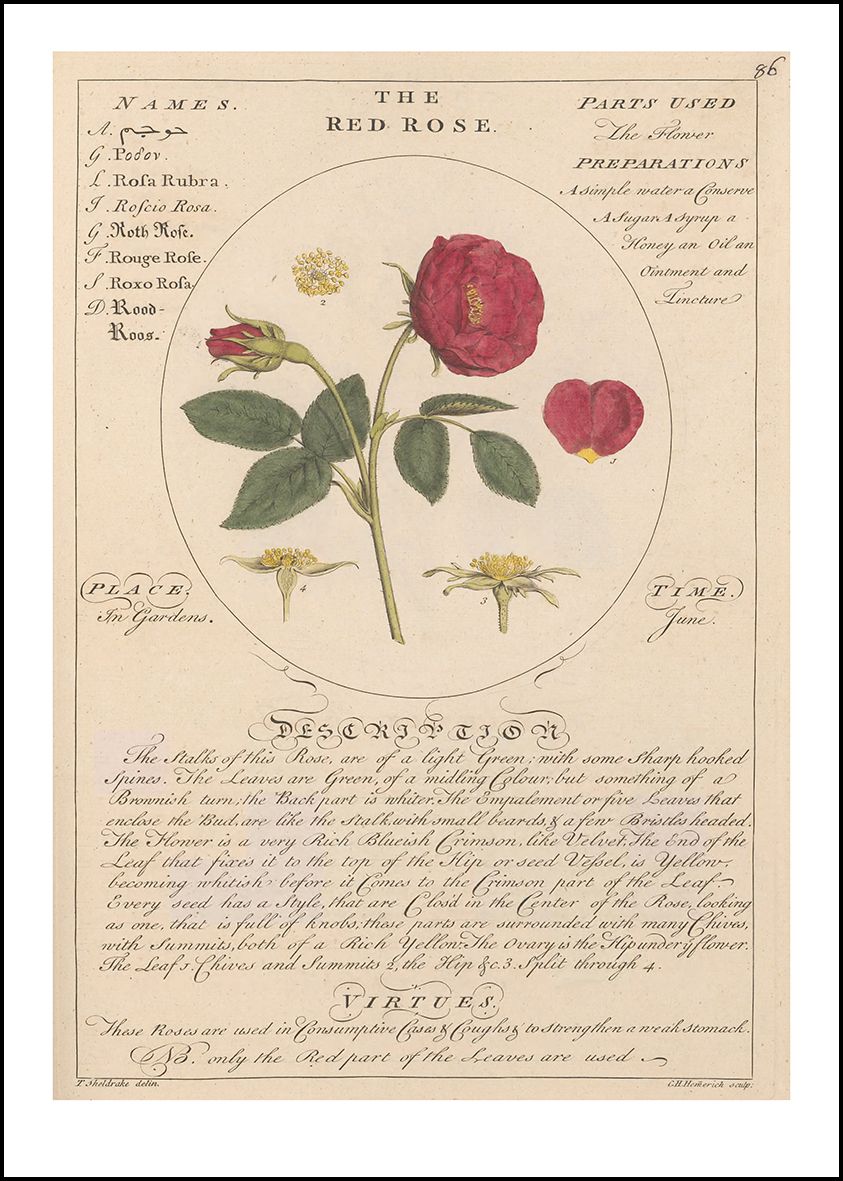 86
THE
RED ROSE.
NAMES.
A. حوجم
G. Ροδον.
L. Roſa Rubra.
I. Roſcio Rosa.
G. Roth Roſe.
F. Rouge Roſe.
S. Roxo Roſa.
D. Rood-
Roos.
PARTS USED
The Flower
PREPARATIONS
A simple water a Conserve
A Sugar A syrup a
Honey an Oil an
Ointment and
Tincture
2
1
4
3
PLACE.
In Gardens.
TIME.
June.
DESCRIPTION
The Stalks of this Rose, are of a light Green; with some sharp hooked
Spines. The Leaves are Green, of a midling Colour; but something of a
Brownish turn; the Back part is whiter. The Empalement or five Leaves that
enclose the Bud, are like the Stalk, with small beards, & a few Bristles headed.
The Flower is a very Rich Blueish Crimson, like Velvet. The End of the
Leaf that fixes it to the top of the Hip or seed Veſsel, is Yellow,
becoming whitish before it Comes to the Crimson part of the Leaf.
Every seed has a Style, that are Clos'd in the Center of the Rose, looking
as one, that is full of knobs; these parts are surrounded with many Chives,
with Summits, both of a Rich Yellow. The Ovary is the Hip under yͤ flower.
The Leaf 1. Chives and Summits 2, the Hip &c. 3. Split through 4.
VIRTUES.
These Roses are used in Consumptive Cases & Coughs & to strengthen a weak stomack.
NB. only the Red part of the Leaves are used
T. Sheldrake delin.
C.H. Hem̅erich sculp: